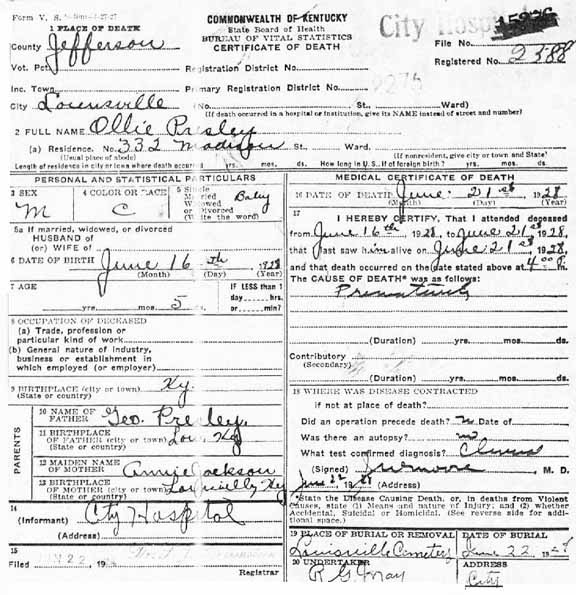 Form V. S.
COMMONWEALTH OF KENTUCKY
State Board of Health
BUREAU OF VITAL STATISTICS
CERTIFICATE OF DEATH
City Hospital
1 PLACE OF DEATH
County Jefferson
File No.
Registered No. 2388
Vot. Pct. Registration District No.
Inc. Town Primary Registration District No.
City Louisville (No. St., Ward)
(If death occurred in a hospital or institution, give its NAME instead of street and number)
2 FULL NAME Ollie Presley
(a) Residence. No. 332 Madison St., Ward.
(Usual place of abode) (If nonresident, give city or town and State)
Length of residence in city or town where death occurred yrs. mos. ds. How long in U.S., if of foreign birth? yrs. mos. ds.
PERSONAL AND STATISTICAL PARTICULARS
3 SEX M
4 COLOR OR RACE C
5 Single Married Widowed or Divorced (Write the word) Baby
5a If married, widowed, or divorced
HUSBAND of
(or) WIFE of
6 DATE OF BIRTH June 16th 1928
(Month) (Day) (Year)
7 AGE yrs. mos. 5 ds.
IF LESS than 1 day hrs. or min?
8 OCCUPATION OF DECEASED
(a) Trade, profession or
particular kind of work
(b) General nature of industry,
business or establishment in
which employed (or employer)
9 BIRTHPLACE (city or town) Ky.
(State or country)
PARENTS
10 NAME OF FATHER Geo. Presley
11 BIRTHPLACE OF FATHER (city or town) Lou, Ky
(State or country)
12 MAIDEN NAME OF MOTHER Annie Jackson
13 BIRTHPLACE OF MOTHER (city or town) Ky
(State or country)
14
(Informant) City Hospital
(Address)
15
Filed 22 19
Registrar
MEDICAL CERTIFICATE OF DEATH
16 DATE OF DEATH June 21st 1928
(Month) (Day) (Year)
17
I HEREBY CERTIFY, That I attended deceased
from June 16th, 1928, to June 21st, 1928,
that I last saw him alive on June 21st, 1928,
and that death occurred on the date stated above at 4:00 m.
The CAUSE OF DEATH* was as follows:
Prematurity
(Duration) yrs. mos. ds.
Contributory
(Secondary)
(Duration) yrs. mos. ds.
18 WHERE WAS DISEASE CONTRACTED
if not at place of death?
Did an operation precede death? no Date of
Was there an autopsy? no
What test confirmed diagnosis?
(Signed) M. D.
June 22 1928 (Address)
*State the Disease Causing Death, or, in deaths from Violent
Causes, state (1) Means and nature of Injury; and (2) whether
Accidental, Suicidal or Homicidal. (See reverse side for addi-
tional space.)
19 PLACE OF BURIAL OR REMOVAL Louisville Cemetery
DATE OF BURIAL June 22 192
20 UNDERTAKER R G May
ADDRESS City